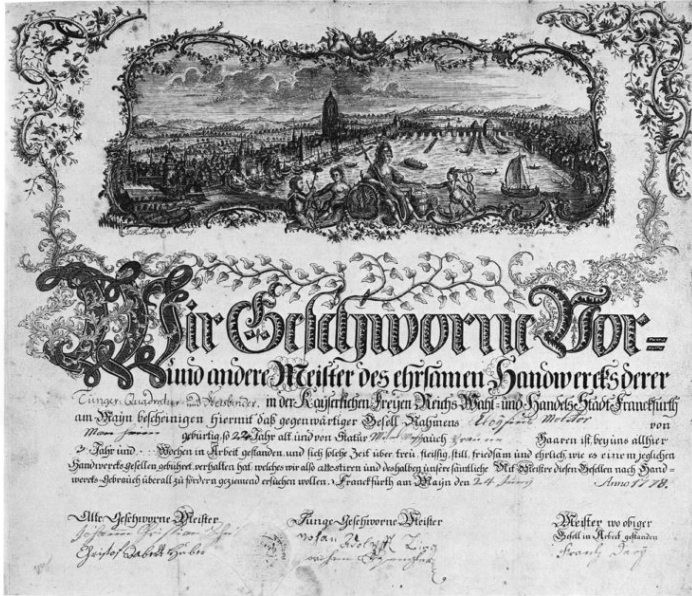 Wir Geschworne Vor=
und andere Meister des ehrsamen Handwercks derer
Tünger, Quadratur und Weisbinder. in der Kayserlichen Freyen Reichs Wahl- und Handels Stadt Franckfurth
am Mayn bescheinigen hiermit daß gegenwärtiger Gesell Nahmens Aloysius Molitor von
gebürtig, so 22 Jahr alt, und von Statur auch Haaren ist, bey uns allhier
3 Jahr und Wochen in Arbeit gestanden, und sich solche Zeit über treu, fleissig, still, friedsam und ehrlich, wie es einem jeglichen
Handwercks-Gesellen gebühret, verhalten hat, welches wir also attestiren und deshalben unsere sämtliche Mit-Meister diesen Gesellen nach Hand-
wercks-Gebrauch überall zu fördern geziemend ersuchen wollen. Franckfurth am Mayn den 24 Juny Anno 1778.
Alte Geschworne Meister
Junge Geschworne Meister
Meister wo obiger
Gesell in Arbeit gestanden
Johann Christian
Christof
Johan Adolff
Frantz